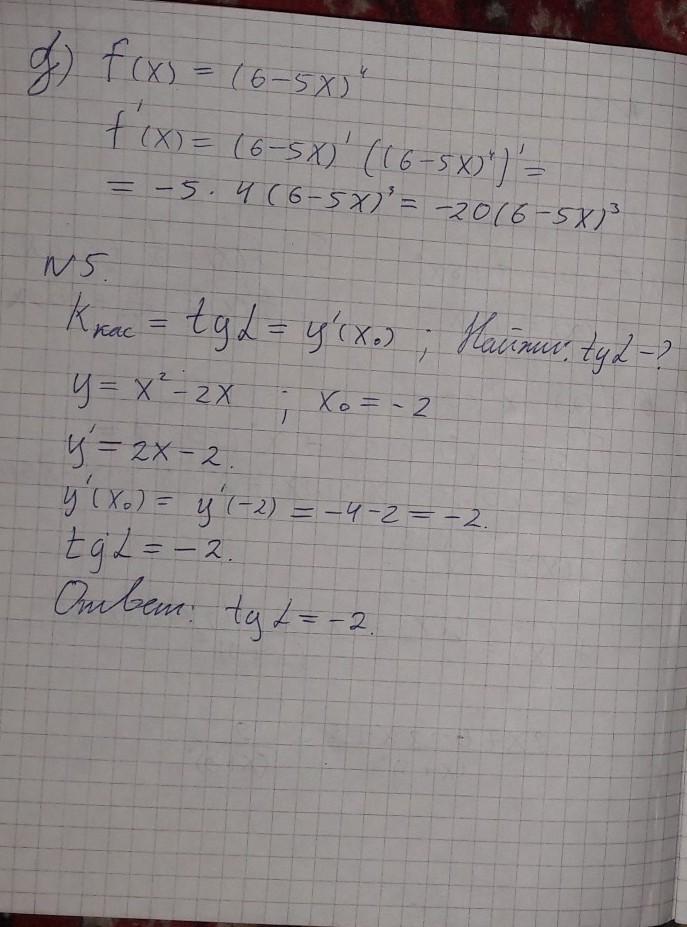 д) f(x) = (6-5x)⁴
f'(x) = (6-5x)' ((6-5x)⁴)' =
= -5 · 4(6-5x)³ = -20(6-5x)³
N5.
Kкас = tgα = y'(x₀) ; Найти: tgα-?
y = x²-2x ; x₀ = -2
y' = 2x-2.
y'(x₀) = y'(-2) = -4-2 = -2.
tgα = -2.
Ответ: tgα = -2.